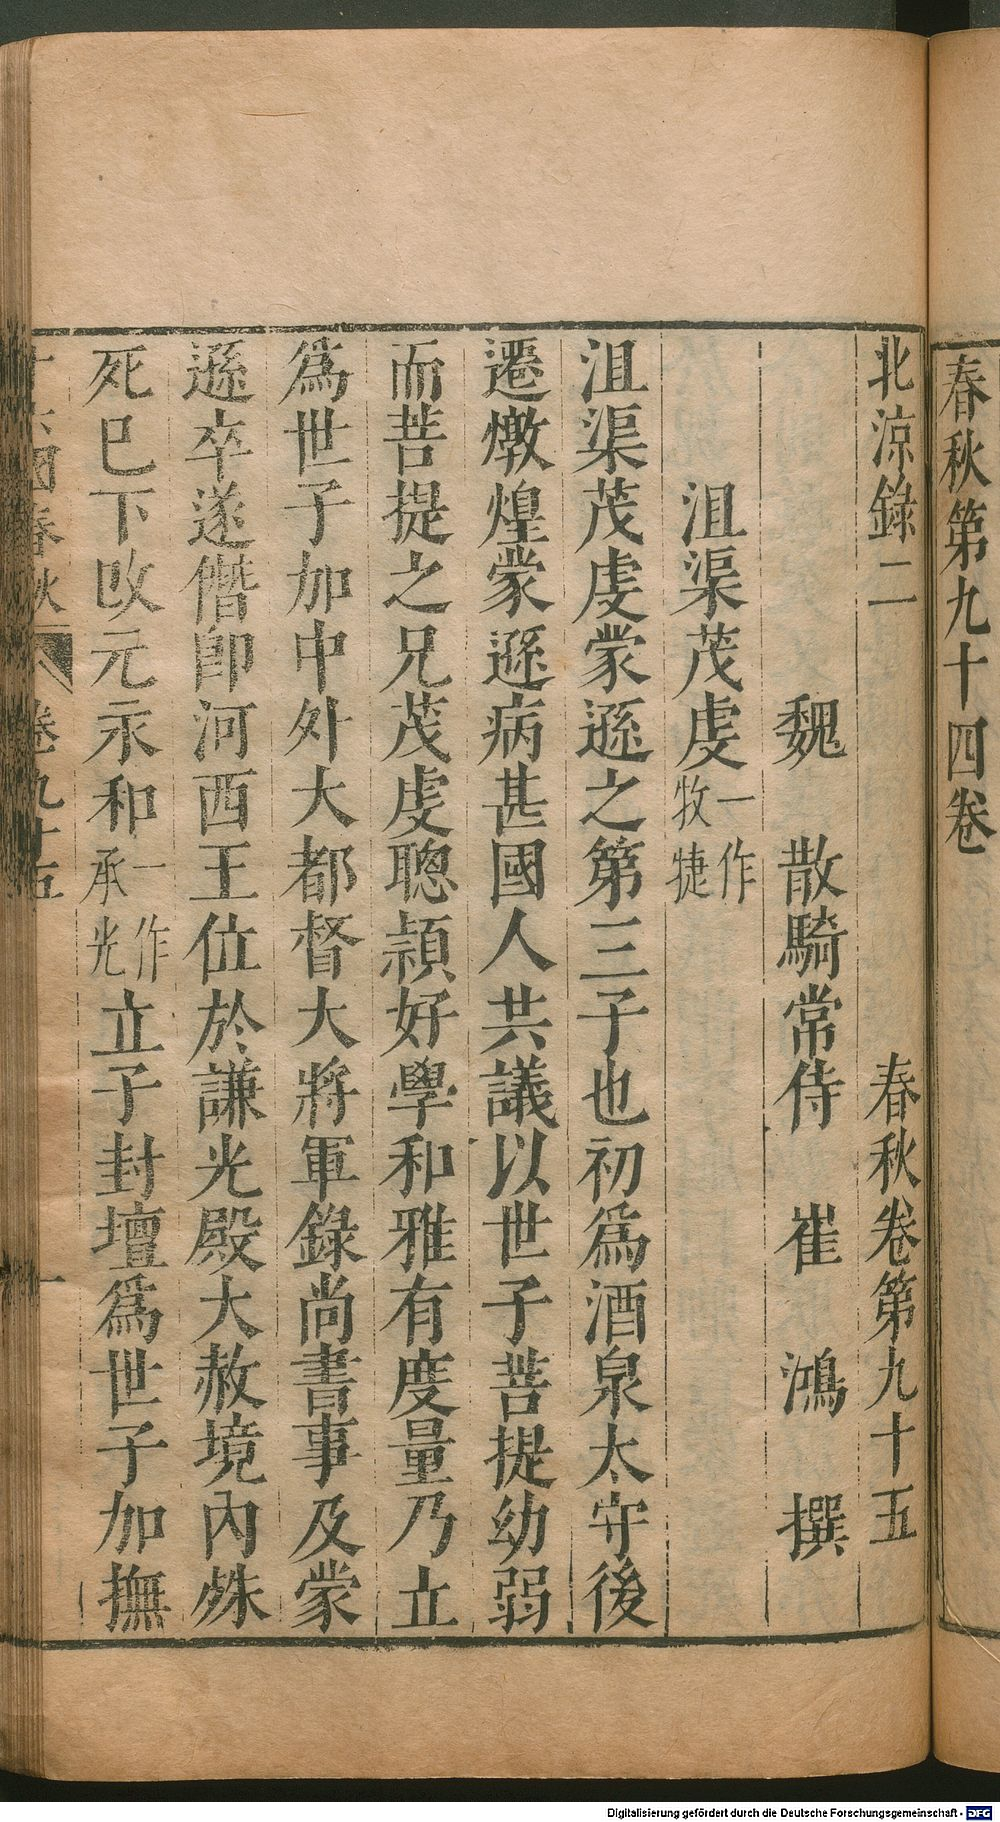 春秋第九十四卷
北涼錄二　春秋卷第九十五
魏　散騎常侍　崔　鴻　撰
沮渠茂虔一作牧犍
沮渠茂虔蒙遜之第三子也初爲酒泉太守後
遷燉煌蒙遜病甚國人共議以世子菩提幼弱
而菩提之兄茂虔聰穎好學和雅有度量乃立
爲世子加中外大都督大將軍錄尚書事及蒙
遜卒遂僭即河西王位於謙光殿大赦境內殊
死巳下改元永和一作承光立子封壇爲世子加撫
國春秋　卷九十五　一
Digitalisierung gefördert durch die Deutsche Forschungsgemeinschaft - DFG